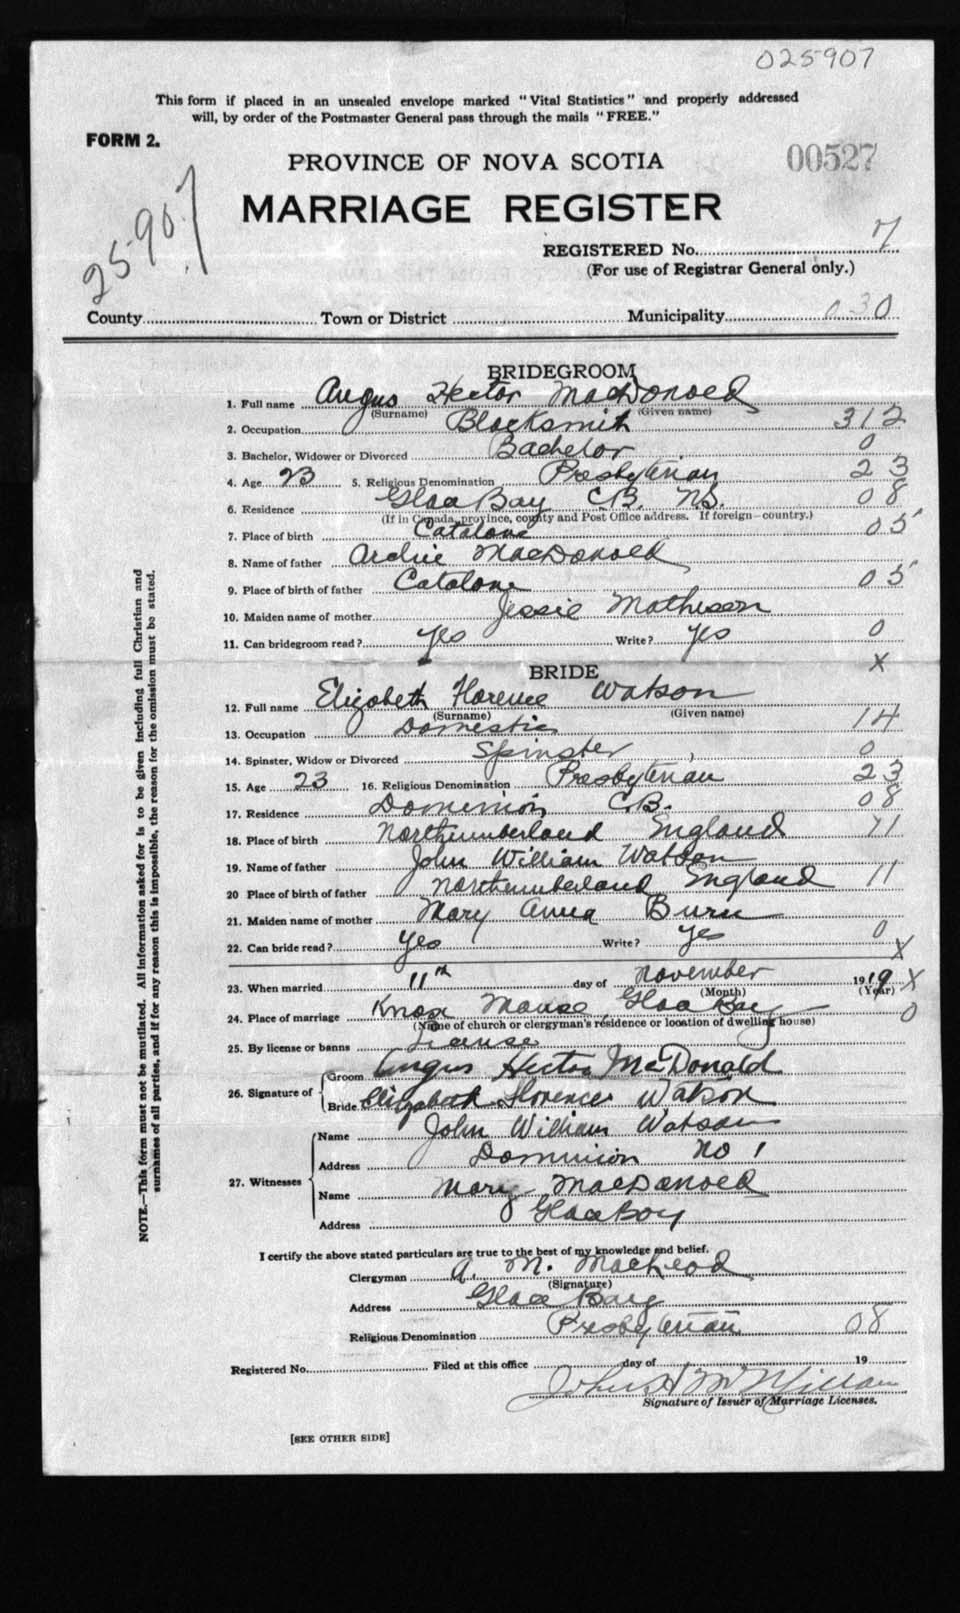 025907
This form if placed in an unsealed envelope marked "Vital Statistics" and properly addressed
will, by order of the Postmaster General pass through the mails "FREE."
FORM 2.
PROVINCE OF NOVA SCOTIA
00527
MARRIAGE REGISTER
25907
REGISTERED No. 7
(For use of Registrar General only.)
County Town or District Municipality 030
BRIDEGROOM
1. Full name Angus Hector MacDonald
(Surname) (Given name)
2. Occupation Blacksmith 312
3. Bachelor, Widower or Divorced Bachelor 0
4. Age 23 5. Religious Denomination Presbyterian 23
6. Residence Glace Bay C.B. N.S. 08
(If in Canada, province, county and Post Office address. If foreign—country.)
7. Place of birth Catalone 05
8. Name of father Archie MacDonald
9. Place of birth of father Catalone 05
10. Maiden name of mother Jessie Matheson
11. Can bridegroom read? Yes Write? Yes 0
x
BRIDE
12. Full name Elizabeth Florence Watson
(Surname) (Given name)
13. Occupation Domestic 14
14. Spinster, Widow or Divorced Spinster 0
15. Age 23 16. Religious Denomination Presbyterian 23
17. Residence Dominion, C.B. 08
18. Place of birth Northumberland England 11
19. Name of father John William Watson
20 Place of birth of father Northumberland England 11
21. Maiden name of mother Mary Anna Burn
22. Can bride read? Yes Write? Yes 0
x
23. When married 11th day of November 1919 x
(Month) (Year)
24. Place of marriage Knox Manse, Glace Bay 0
(Name of church or clergyman's residence or location of dwelling house)
25. By license or banns License
26. Signature of Groom Angus Hector McDonald
Bride Elizabeth Florence Watson
27. Witnesses Name John William Watson
Address Dominion No 1
Name Mary MacDonald
Address Glace Bay
I certify the above stated particulars are true to the best of my knowledge and belief.
Clergyman A. M. MacLeod
(Signature)
Address Glace Bay
Religious Denomination Presbyterian 08
Registered No. Filed at this office day of 19
John H McMillan
Signature of Issuer of Marriage Licenses.
[SEE OTHER SIDE]
NOTE.—This form must not be mutilated. All information asked for is to be given including full Christian and
surnames of all parties, and if for any reason this is impossible, the reason for the omission must be stated.